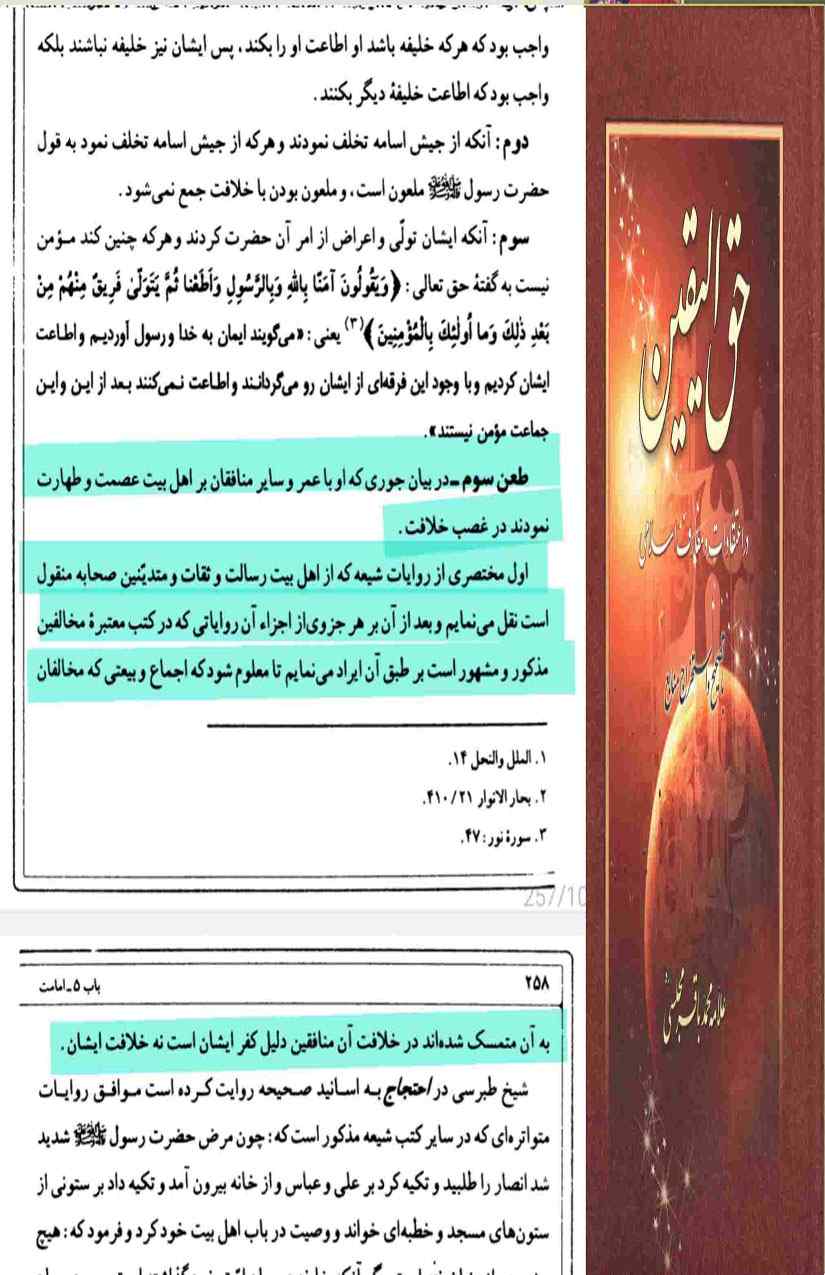 واجب بود که هرکه خلیفه باشد او اطاعت او را بکند، پس ایشان نیز خلیفه نباشند بلکه
واجب بود که اطاعت خلیفۀ دیگر بکنند.
دوم: آنکه از جیش اسامه تخلف نمودند و هرکه از جیش اسامه تخلف نمود به قول
حضرت رسول ﷺ ملعون است، و ملعون بودن با خلافت جمع نمی‌شود.
سوم: آنکه ایشان تولّی و اعراض از امر آن حضرت کردند و هرکه چنین کند مؤمن
نیست به گفتۀ حق تعالی: ﴿وَیَقُولُونَ آمَنّا بِاللهِ وَبِالرَّسُولِ وَأَطَعْنا ثُمَّ یَتَوَلّی فَرِیقٌ مِنْهُمْ مِنْ
بَعْدِ ذٰلِکَ وَما أُولٰئِکَ بِالْمُؤْمِنِینَ﴾(۳) یعنی: «می‌گویند ایمان به خدا و رسول آوردیم و اطاعت
ایشان کردیم و با وجود این فرقه‌ای از ایشان رو می‌گردانند و اطاعت نمی‌کنند بعد از این و این
جماعت مؤمن نیستند».
طعن سوم ـ در بیان جوری که او با عمر و سایر منافقان بر اهل بیت عصمت و طهارت
نمودند در غصب خلافت.
اول مختصری از روایات شیعه که از اهل بیت رسالت و ثقات و متدیّنین صحابه منقول
است نقل می‌نمایم و بعد از آن بر هر جزوی‌از اجزاء آن روایاتی که در کتب معتبرۀ مخالفین
مذکور و مشهور است بر طبق آن ایراد می‌نمایم تا معلوم شود که اجماع و بیعتی که مخالفان
۱. الملل والنحل ۱۴.
۲. بحار الانوار ۴۱۰/۲۱.
۳. سورۀ نور: ۴۷.
257/10
۲۵۸
باب ۵ ـ امامت
به آن متمسک شده‌اند در خلافت آن منافقین دلیل کفر ایشان است نه خلافت ایشان.
شیخ طبرسی در احتجاج به اسانید صحیحه روایت کرده است موافق روایات
متواتره‌ای که در سایر کتب شیعه مذکور است که: چون مرض حضرت رسول ﷺ شدید
شد انصار را طلبید و تکیه کرد بر علی و عباس و از خانه بیرون آمد و تکیه داد بر ستونی از
ستون‌های مسجد و خطبه‌ای خواند و وصیت در باب اهل بیت خود کرد و فرمود که: هیچ
حق الیقین
در اعتقادات و معارف اسلامی
علامه محمد باقر مجلسی